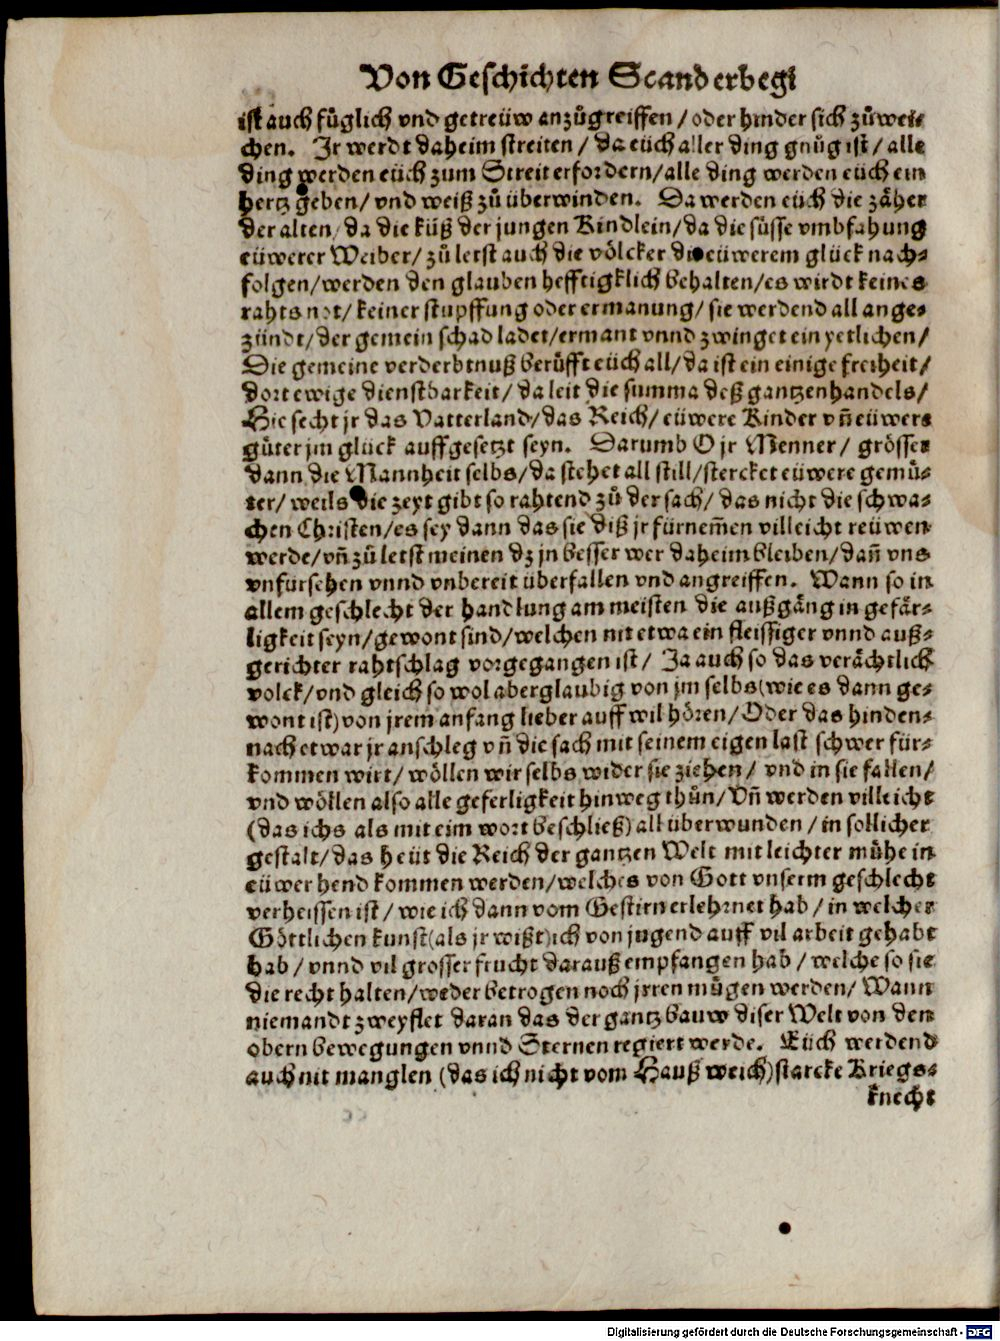 Von Geschichten Scanderbegi
ist auch füglich vnd getreüw anzůgreiffen / oder hinder sich zůwei-
chen. Ir werdt daheim streiten / da eüch aller ding gnůg ist / alle
ding werden eüch zum Streit erfordern / alle ding werden eüch ein
hertz geben / vnd weiß zů überwinden. Da werden eüch die zäher
der alten / da die küß der jungen Kindlein / da die süsse vmbfahung
eüwerer Weiber / zů letst auch die völcker die eüwerem glück nach-
folgen / werden den glauben hefftigklich behalten / es wirdt keines
rahts not / keiner stupffung oder ermanung / sie werdend all ange-
zündt / der gemein schad ladet / ermant vnnd zwinget ein yetlichen /
Die gemeine verderbtnuß berůfft eüch all / da ist ein einige freiheit /
dort ewige dienstbarkeit / da leit die summa deß gantzen handels /
Hie secht jr das Vatterland / das Reich / eüwere Kinder vñ eüwers
güter jm glück auffgesetzt seyn. Darumb O jr Menner / grösser
dann die Mannheit selbs / da stehet all still / stercket eüwere gemü-
ter / weils die zeyt gibt so rahtend zů der sach / das nicht die schwa-
chen Christen / es sey dann das sie diß jr fürnem̃en villeicht reüwen
werde / vñ zů letst meinen dz jn besser wer daheim bleiben / dañ vns
vnfürsehen vnnd vnbereit überfallen vnd angreiffen. Wann so in
allem geschlecht der handlung am meisten die außgäng in gefär-
ligkeit seyn / gewont sind / welchen nit etwa ein fleissiger vnnd auß-
gerichter rahtschlag vorgegangen ist / Ja auch so das verächtlich
volck / vnd gleich so wol aberglaubig von jm selbs (wie es dann ge-
wont ist) von jrem anfang lieber auff wil hören / Oder das hinden-
nach etwar jr anschleg vñ die sach mit seinem eigen last schwer für-
kommen wirt / wöllen wir selbs wider sie ziehen / vnd in sie fallen /
vnd wöllen also alle geferligkeit hinweg thůn / Vñ werden villeicht
(das ichs als mit eim wort beschließ) all überwunden / in sollicher
gestalt / das heüt die Reich der gantzen Welt mit leichter mühe in
eüwer hend kommen werden / welches von Gott vnserm geschlecht
verheissen ist / wie ich dann vom Gestirn erlehrnet hab / in welcher
Göttlichen kunst (als jr wißt) ich von jugend auff vil arbeit gehabt
hab / vnnd vil grosser frucht darauß empfangen hab / welche so sie
die recht halten / weder betrogen noch jrren mügen werden / Wann
niemandt zweyflet daran das der gantz bauw diser Welt von den
obern bewegungen vnnd Sternen regiert werde. Eüch werdend
auch nit manglen (das ich nicht vom Hauß weich) starcke Kriegs-
knecht
Digitalisierung gefördert durch die Deutsche Forschungsgemeinschaft - DFG